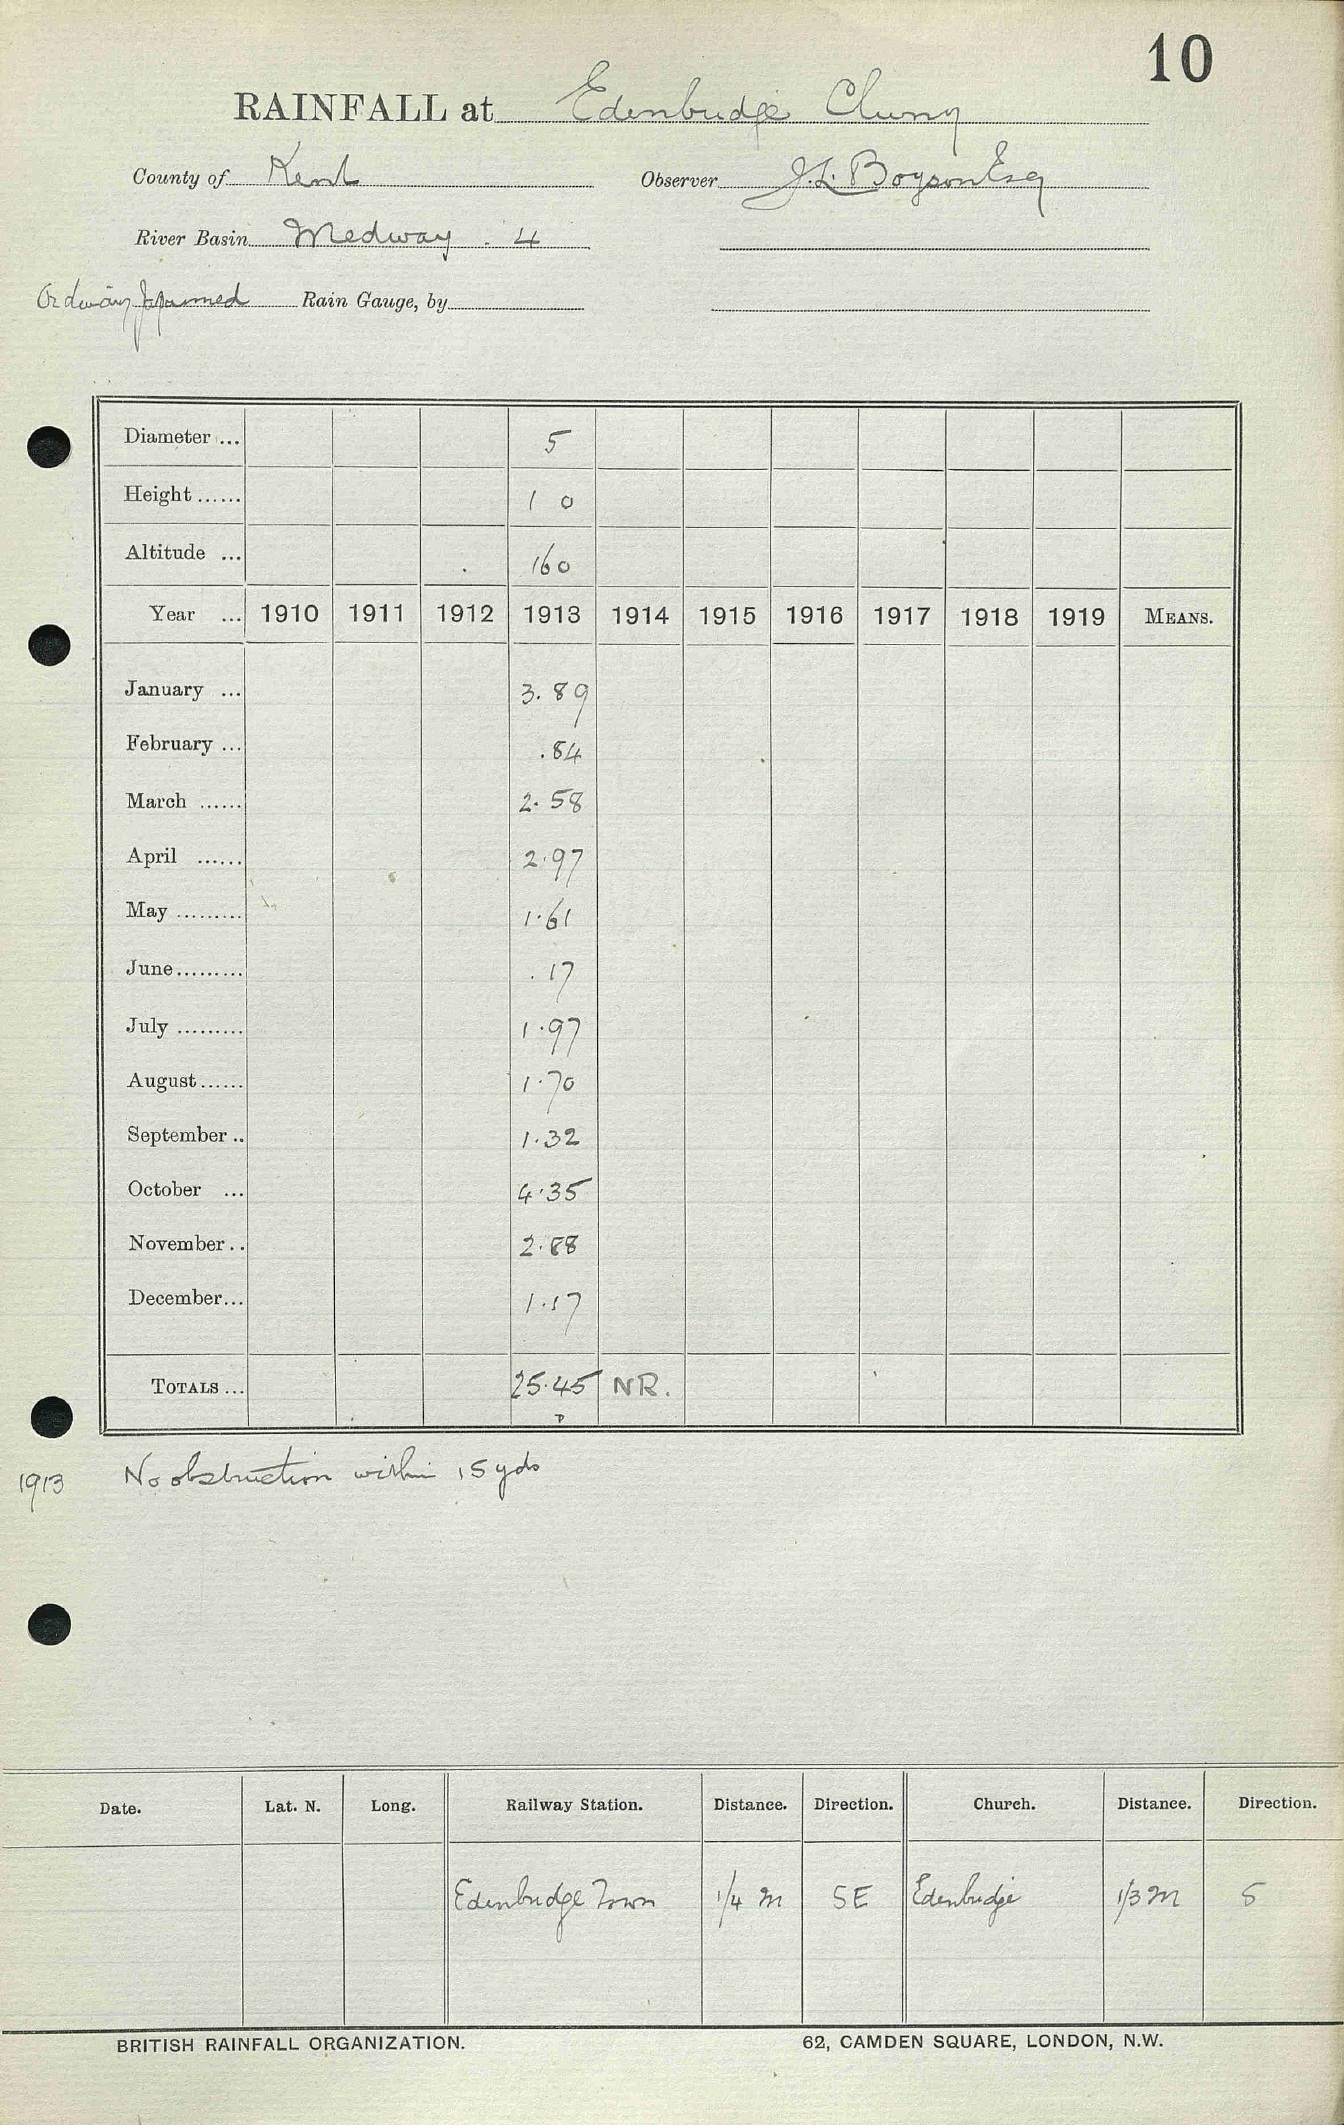 10
RAINFALL at Edenbridge Cluny
County of Kent Observer J. L. Boyson Esq
River Basin Medway . 4
Ordinary Japanned Rain Gauge, by
Diameter ... 5
Height ...... 1 0
Altitude ... 160
Year ... 1910 1911 1912 1913 1914 1915 1916 1917 1918 1919 MEANS.
January ... 3.89
February ... .84
March ...... 2.58
April ...... 2.97
May ......... 1.61
June ......... .17
July ......... 1.97
August ...... 1.70
September .. 1.32
October ... 4.35
November .. 2.88
December ... 1.17
TOTALS ... 25.45 NR.
1913 No obstruction within 15 yds
Date. Lat. N. Long. Railway Station. Distance. Direction. Church. Distance. Direction.
Edenbridge Town 1/4 M SE Edenbridge 1/3 M S
BRITISH RAINFALL ORGANIZATION. 62, CAMDEN SQUARE, LONDON, N.W.